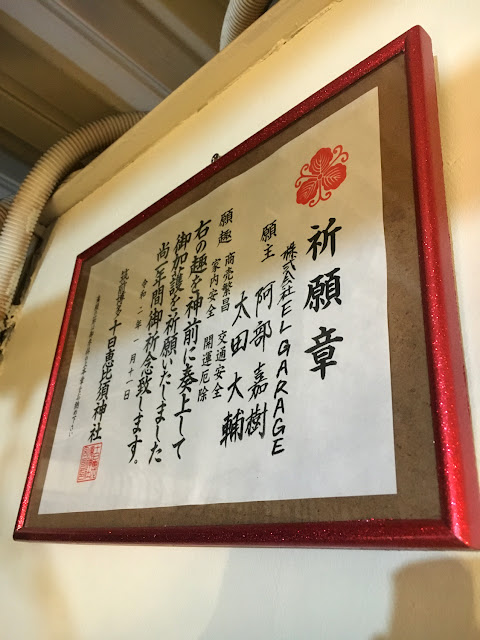 祈願章
株式会社EL GARAGE
願主 阿部嘉樹
太田大輔
願趣 商売繁昌 交通安全
家内安全 開運厄除
右の趣を神前に奏上して
御加護を祈願いたしました
尚一年間御祈念致します。
令和二年一月十一日
筑前博多 十日恵比須神社